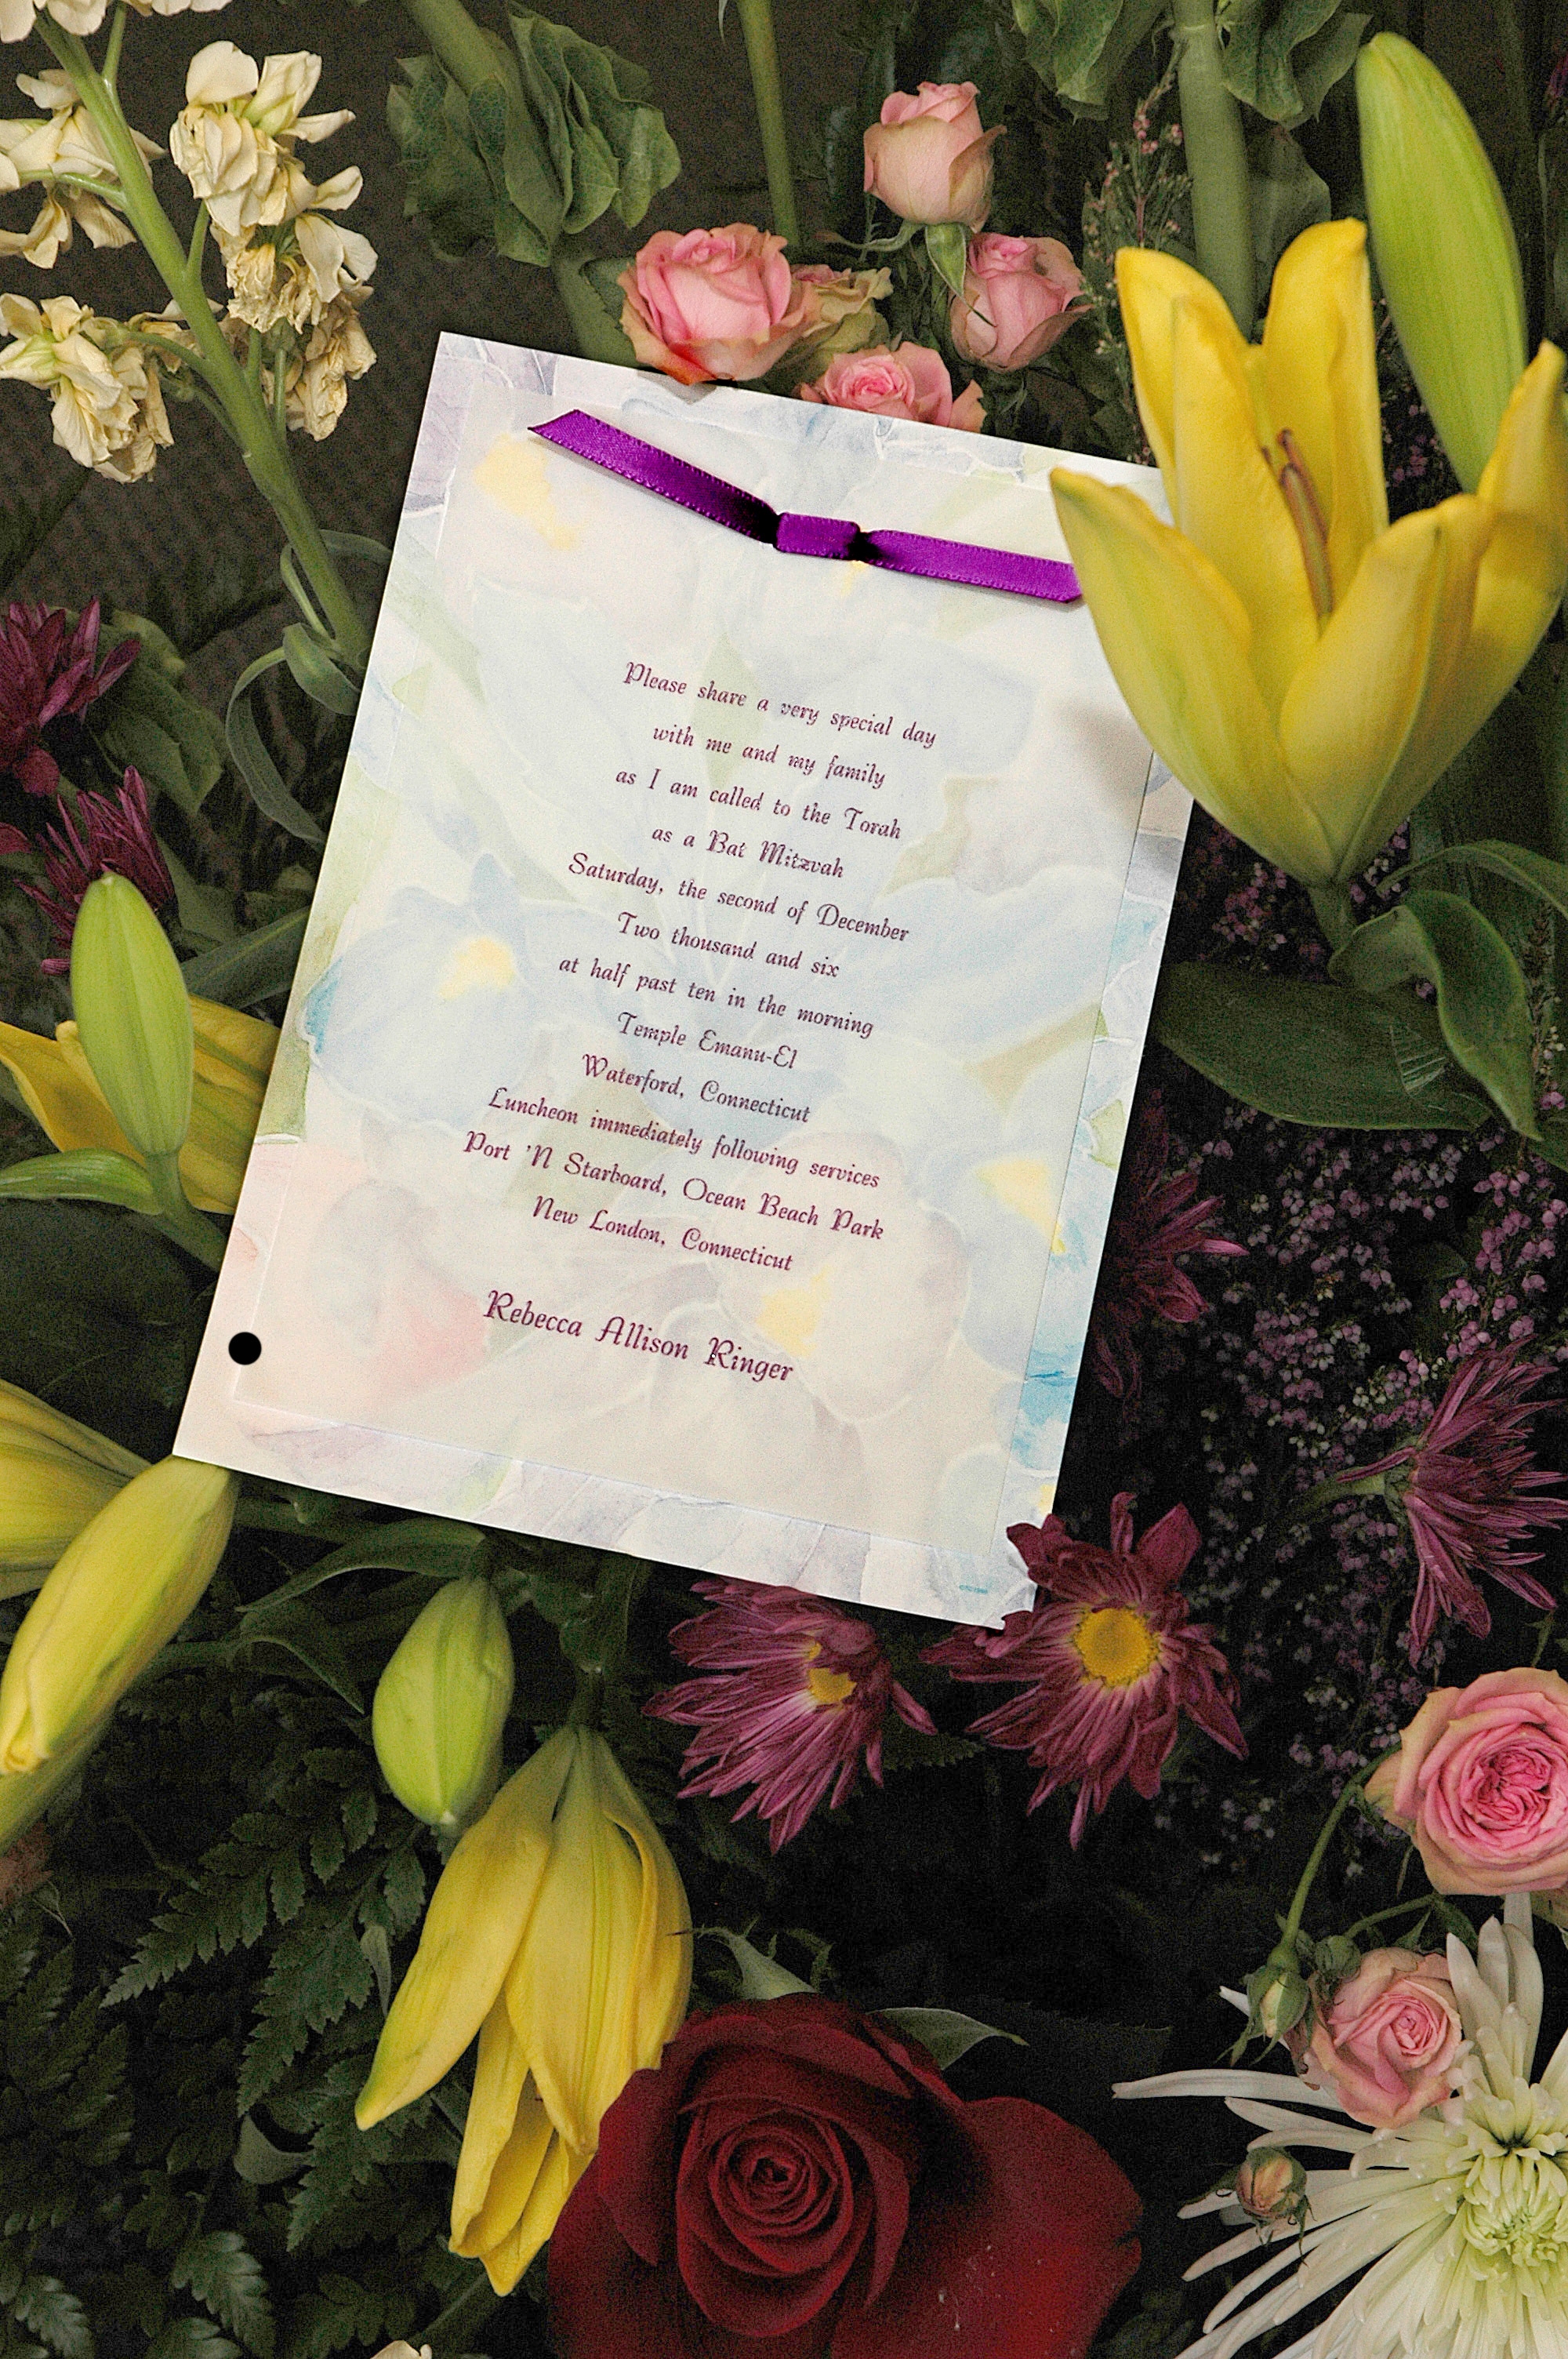 Please share a very special day
with me and my family
as I am called to the Torah
as a Bat Mitzvah
Saturday, the second of December
Two thousand and six
at half past ten in the morning
Temple Emanu-El
Waterford, Connecticut
Luncheon immediately following services
Port 'N Starboard, Ocean Beach Park
New London, Connecticut
Rebecca Allison Ringer